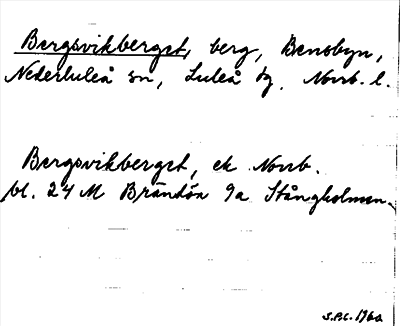 Bergsvikberget, berg, Bensbyn,
Nederluleå sn, Luleå tg. Norrb. l.
Bergsvikberget, ek Norrb.
bl. 24 M Brändön 9a Stångholmen.
S.P.C. 1960